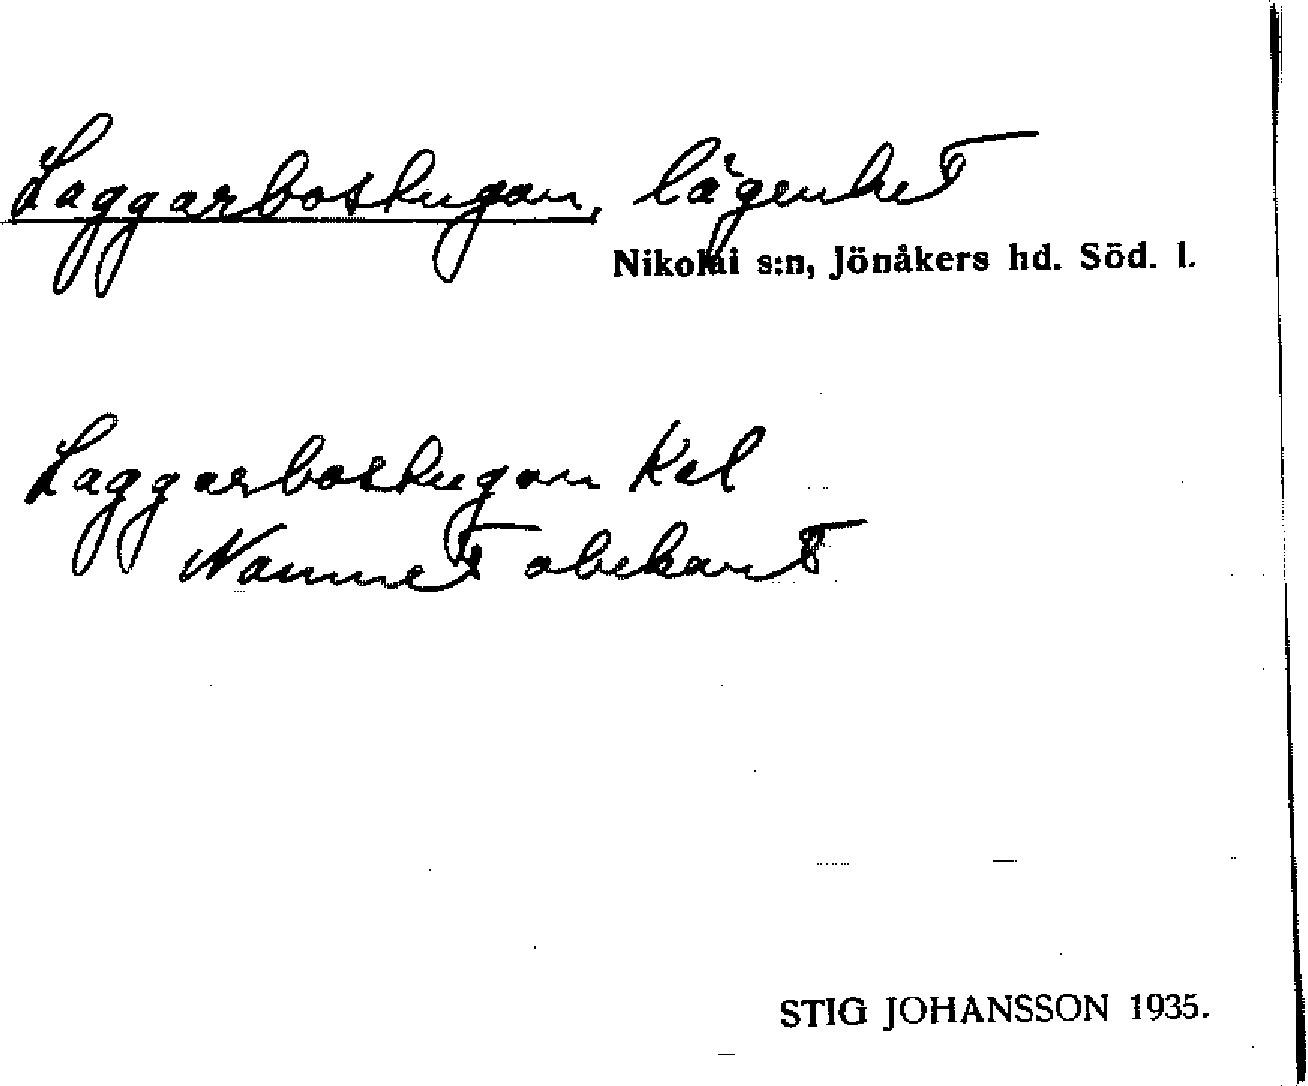 Laggarboskugan, lägenhet
Nikolai s:n, Jönåkers hd. Söd. l.
Laggarboskugan Kal
Namnet obekant
STIG JOHANSSON 1935.